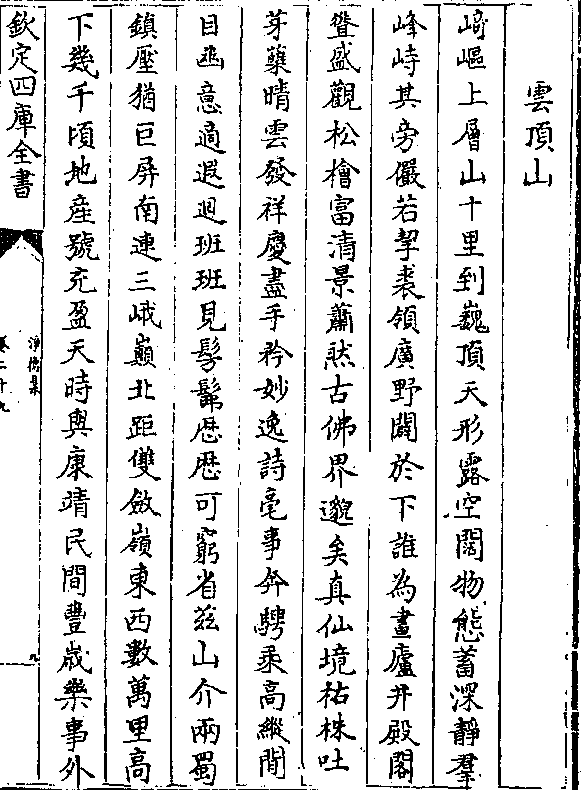 雲頂山
崎嶇上層山十里到巍頂天形露空闊物態蓄深靜羣
峰峙其旁儼若挈裘領廣野闢於下誰為畫廬井殿閣
聳盛觀松檜富清景蕭然古佛界邈矣真仙境枯株吐
芽蘖晴雲發祥慶盡手矜妙逸詩毫事奔騁乘高縱閒
目函意適遐迥班班見髣髴歷歷可窮省茲山介兩蜀
鎮壓猶巨屏南連三峨巔北距雙劔嶺東西數萬里高
下幾千頃地産號充盈天時與康靖民間豐歲樂事外
欽定四庫全書
淨德集
卷二十九
九